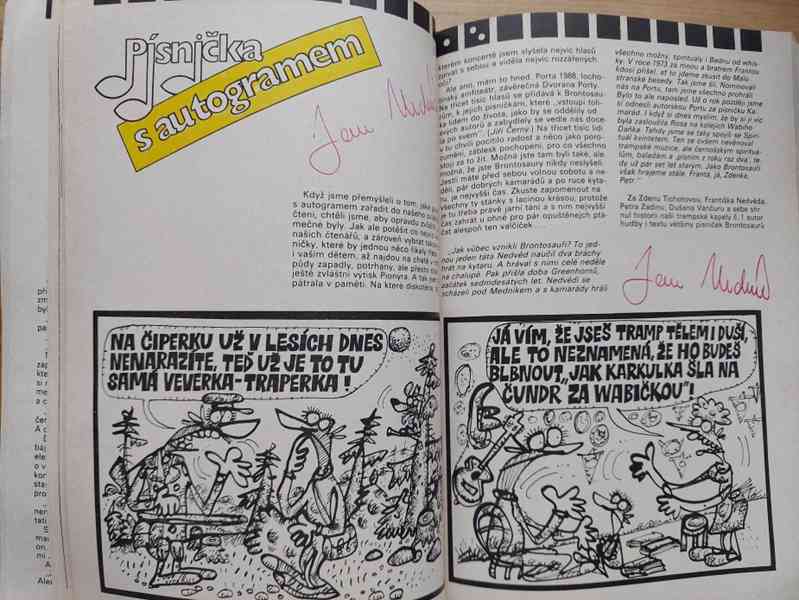 Písnička
s autogramem
Jan Nedvěd
Když jsme přemýšleli o tom, jak
s autogramem zařadit do našeho
čtení, chtěli jsme, aby opravdu
mečné byly. Jak ale potěšit co nejvíc
našich čtenářů, a zároveň vybrat
ničky, které by jednou něco říkaly
i vašim dětem, až najdou na chatě v
půdy zapadlý, potrhaný, ale přesto
ještě zvláštní výtisk Pionýra. A tak
pátrala v paměti. Na které diskotéce
kterém koncertě jsem slyšela nejvíc hlasů
zpívat s sebou a viděla nejvíc rozzářených
očí?
Ale ano, mám to hned. Porta 1988, locho-
tínský amfiteátr, závěrečná Dvorana Porty.
Na třicet tisíc hlasů se přidává k Brontosau-
rům, k jejich písničkám, které „vstoupí toli-
ka lidem do života, jako by se oddělily od
svých autorů a zabydlely se vedle nás doce-
la po svém". (Jiří Černý.) Na třicet tisíc lidí
v tu chvíli pocítilo radost a něco jako poro-
zumění, záblesk pochopení, pro co všechno
stojí za to žít. Možná jste tam byli také, ale
možná, že jste Brontosaury nikdy neslyšeli.
Jestli máte před sebou volnou sobotu a ne-
děli, pár dobrých kamarádů a po ruce kyta-
ru, je nejvyšší čas. Zkuste zapomenout na
všechny ty stánky s lacinou krásou, protože
je tu třeba právě jarní tání a s ním nejvyšší
čas zahrát u ohně pro pár opuštěných ptá-
čat alespoň ten valčíček . . .
„Jak vůbec vznikli Brontosauři? To jed-
nou jeden táta Nedvěd naučil dva brachy
hrát na kytaru. A hrával s nimi celé neděle
na chalupě. Pak přišla doba Greenhornů,
začátek sedmdesátých let. Nedvědi se
scházeli pod Medníkem a s kamarády hráli
všechno možný, spirituály i Bednu od whis-
ky. V roce 1973 za mnou a bratrem Frantou
kdosi přišel, ať to jdeme zkusit do Malo-
stranské besedy. Tak jsme šli. Nominovali
nás na Portu, tam jsme všechno prohráli.
Bylo to ale naposled. Už o rok pozděj jsme
si odnesli autorskou Portu za písničku Ka-
marád. I když si dnes myslím, že by si ji víc
byla zasloužila Rosa na kolejích Wabiho
Daňka. Tehdy jsme se taky spojili se Spiri-
tuál kvintetem. Ten se ovšem nevěnoval
trampské muzice, ale černošským spirituá-
lům, baladám a „písním z roku raz dva", te-
dy už pár set let starým. Jako Brontosauři
však hrajeme stále. Franta, já, Zdenka,
Petr."
Za Zdenu Tichotovou, Františka Nedvěda,
Petra Zadinu, Dušana Vančuru a sebe shr-
nul historii naší trampské kapely č. 1 autor
hudby i textu většiny písniček Brontosaurů
Jan Nedvěd
NA ČIPERKU UŽ V LESÍCH DNES
NENARAZÍTE, TEĎ UŽ JE TO TU
SAMÁ VEVERKA-TRAPERKA!
JÁ VÍM, ŽE JSEŠ TRAMP TĚLEM I DUŠÍ,
ALE TO NEZNAMENÁ, ŽE HO BUDEŠ
BLBNOUT „JAK KARKULKA ŠLA NA
ČUNDR ZA WABIČKOU"!